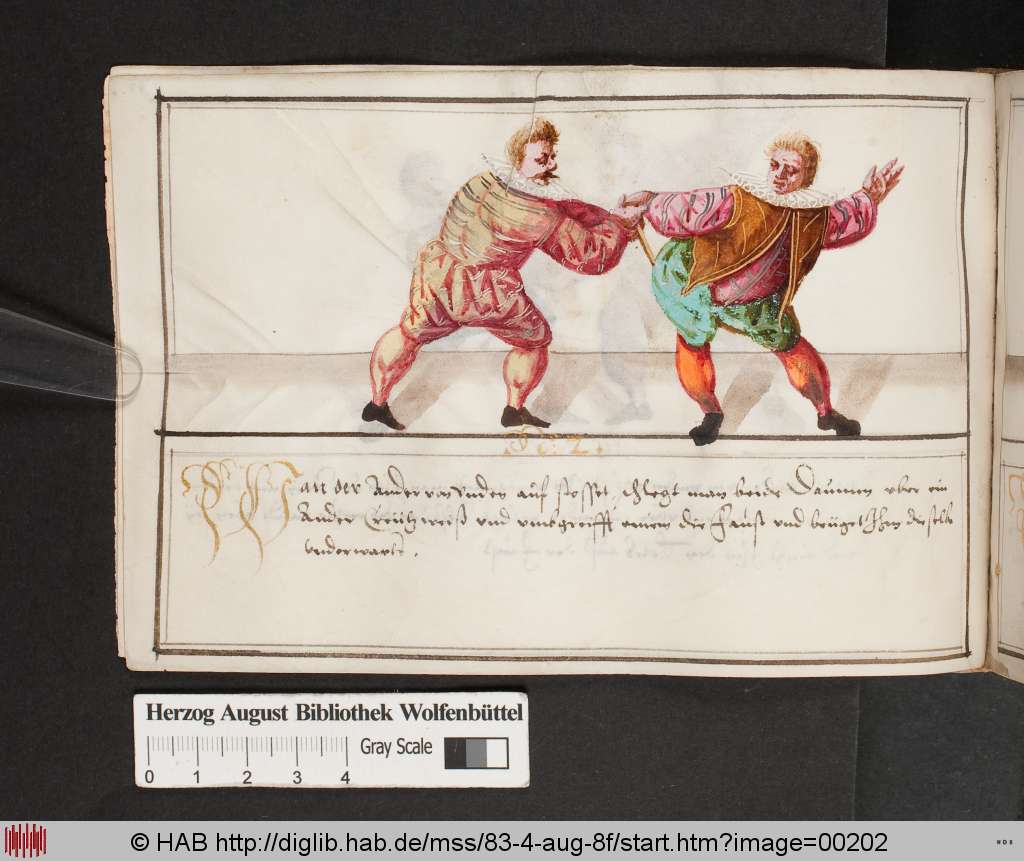 Wan der Ander von unden auf stosset, schlegt man beide Daumen uber ein
Ander Creützweiß und umbgreifft einem die Faust und beüget Ihm dieselb
underwarts.
Herzog August Bibliothek Wolfenbüttel
Gray Scale
0 1 2 3 4
© HAB http://diglib.hab.de/mss/83-4-aug-8f/start.htm?image=00202